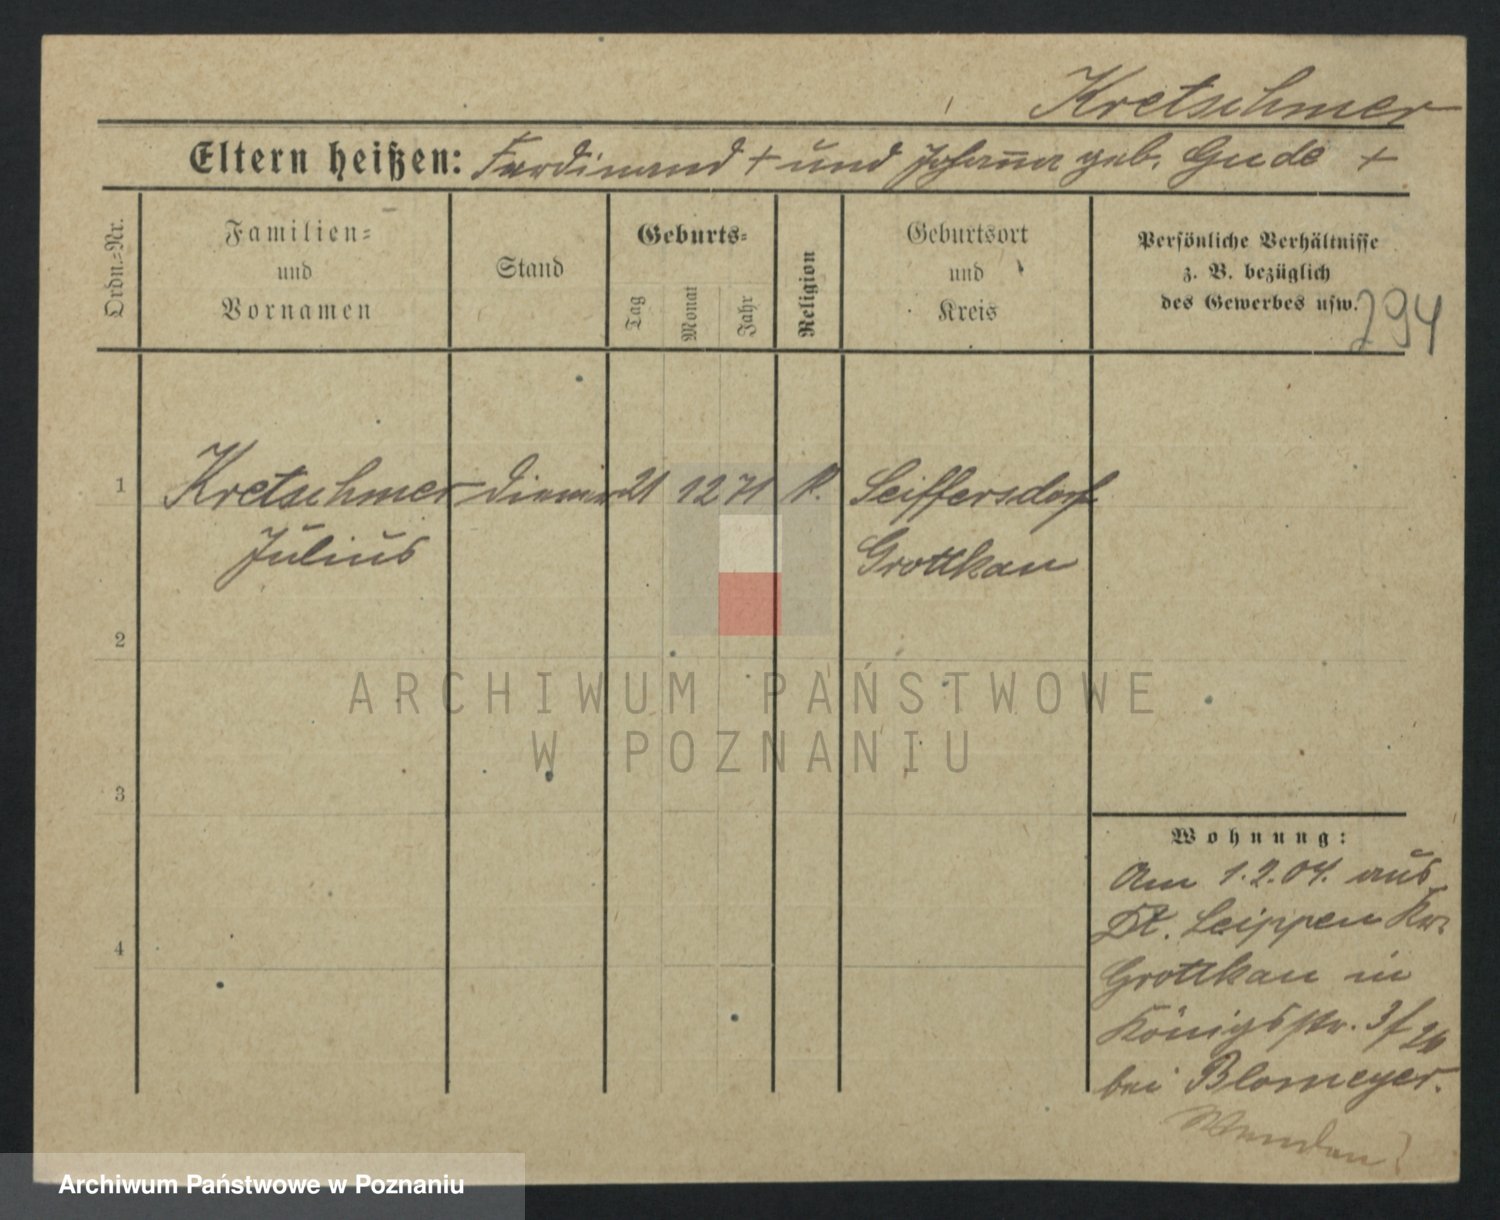 Kretschmer
Eltern heißen: Ferdinand + und Johanna geb. Gude +
Ordn.-Nr.
Familien-
und
Vornamen
Stand
Geburts-
Tag
Monat
Jahr
Religion
Geburtsort
und
Kreis
Persönliche Verhältnisse
z. B. bezüglich
des Gewerbes usw.
294
1 Kretschmer Diener 21 12 71 K. Seiffersdorf
Julius Grottkau
2
3
4
ARCHIWUM PAŃSTWOWE
W POZNANIU
Wohnung:
Am 1.2.04. aus
Dt. Leippen Kr.
Grottkau in
Königsstr. 3
bei Blomeyer.
Archiwum Państwowe w Poznaniu